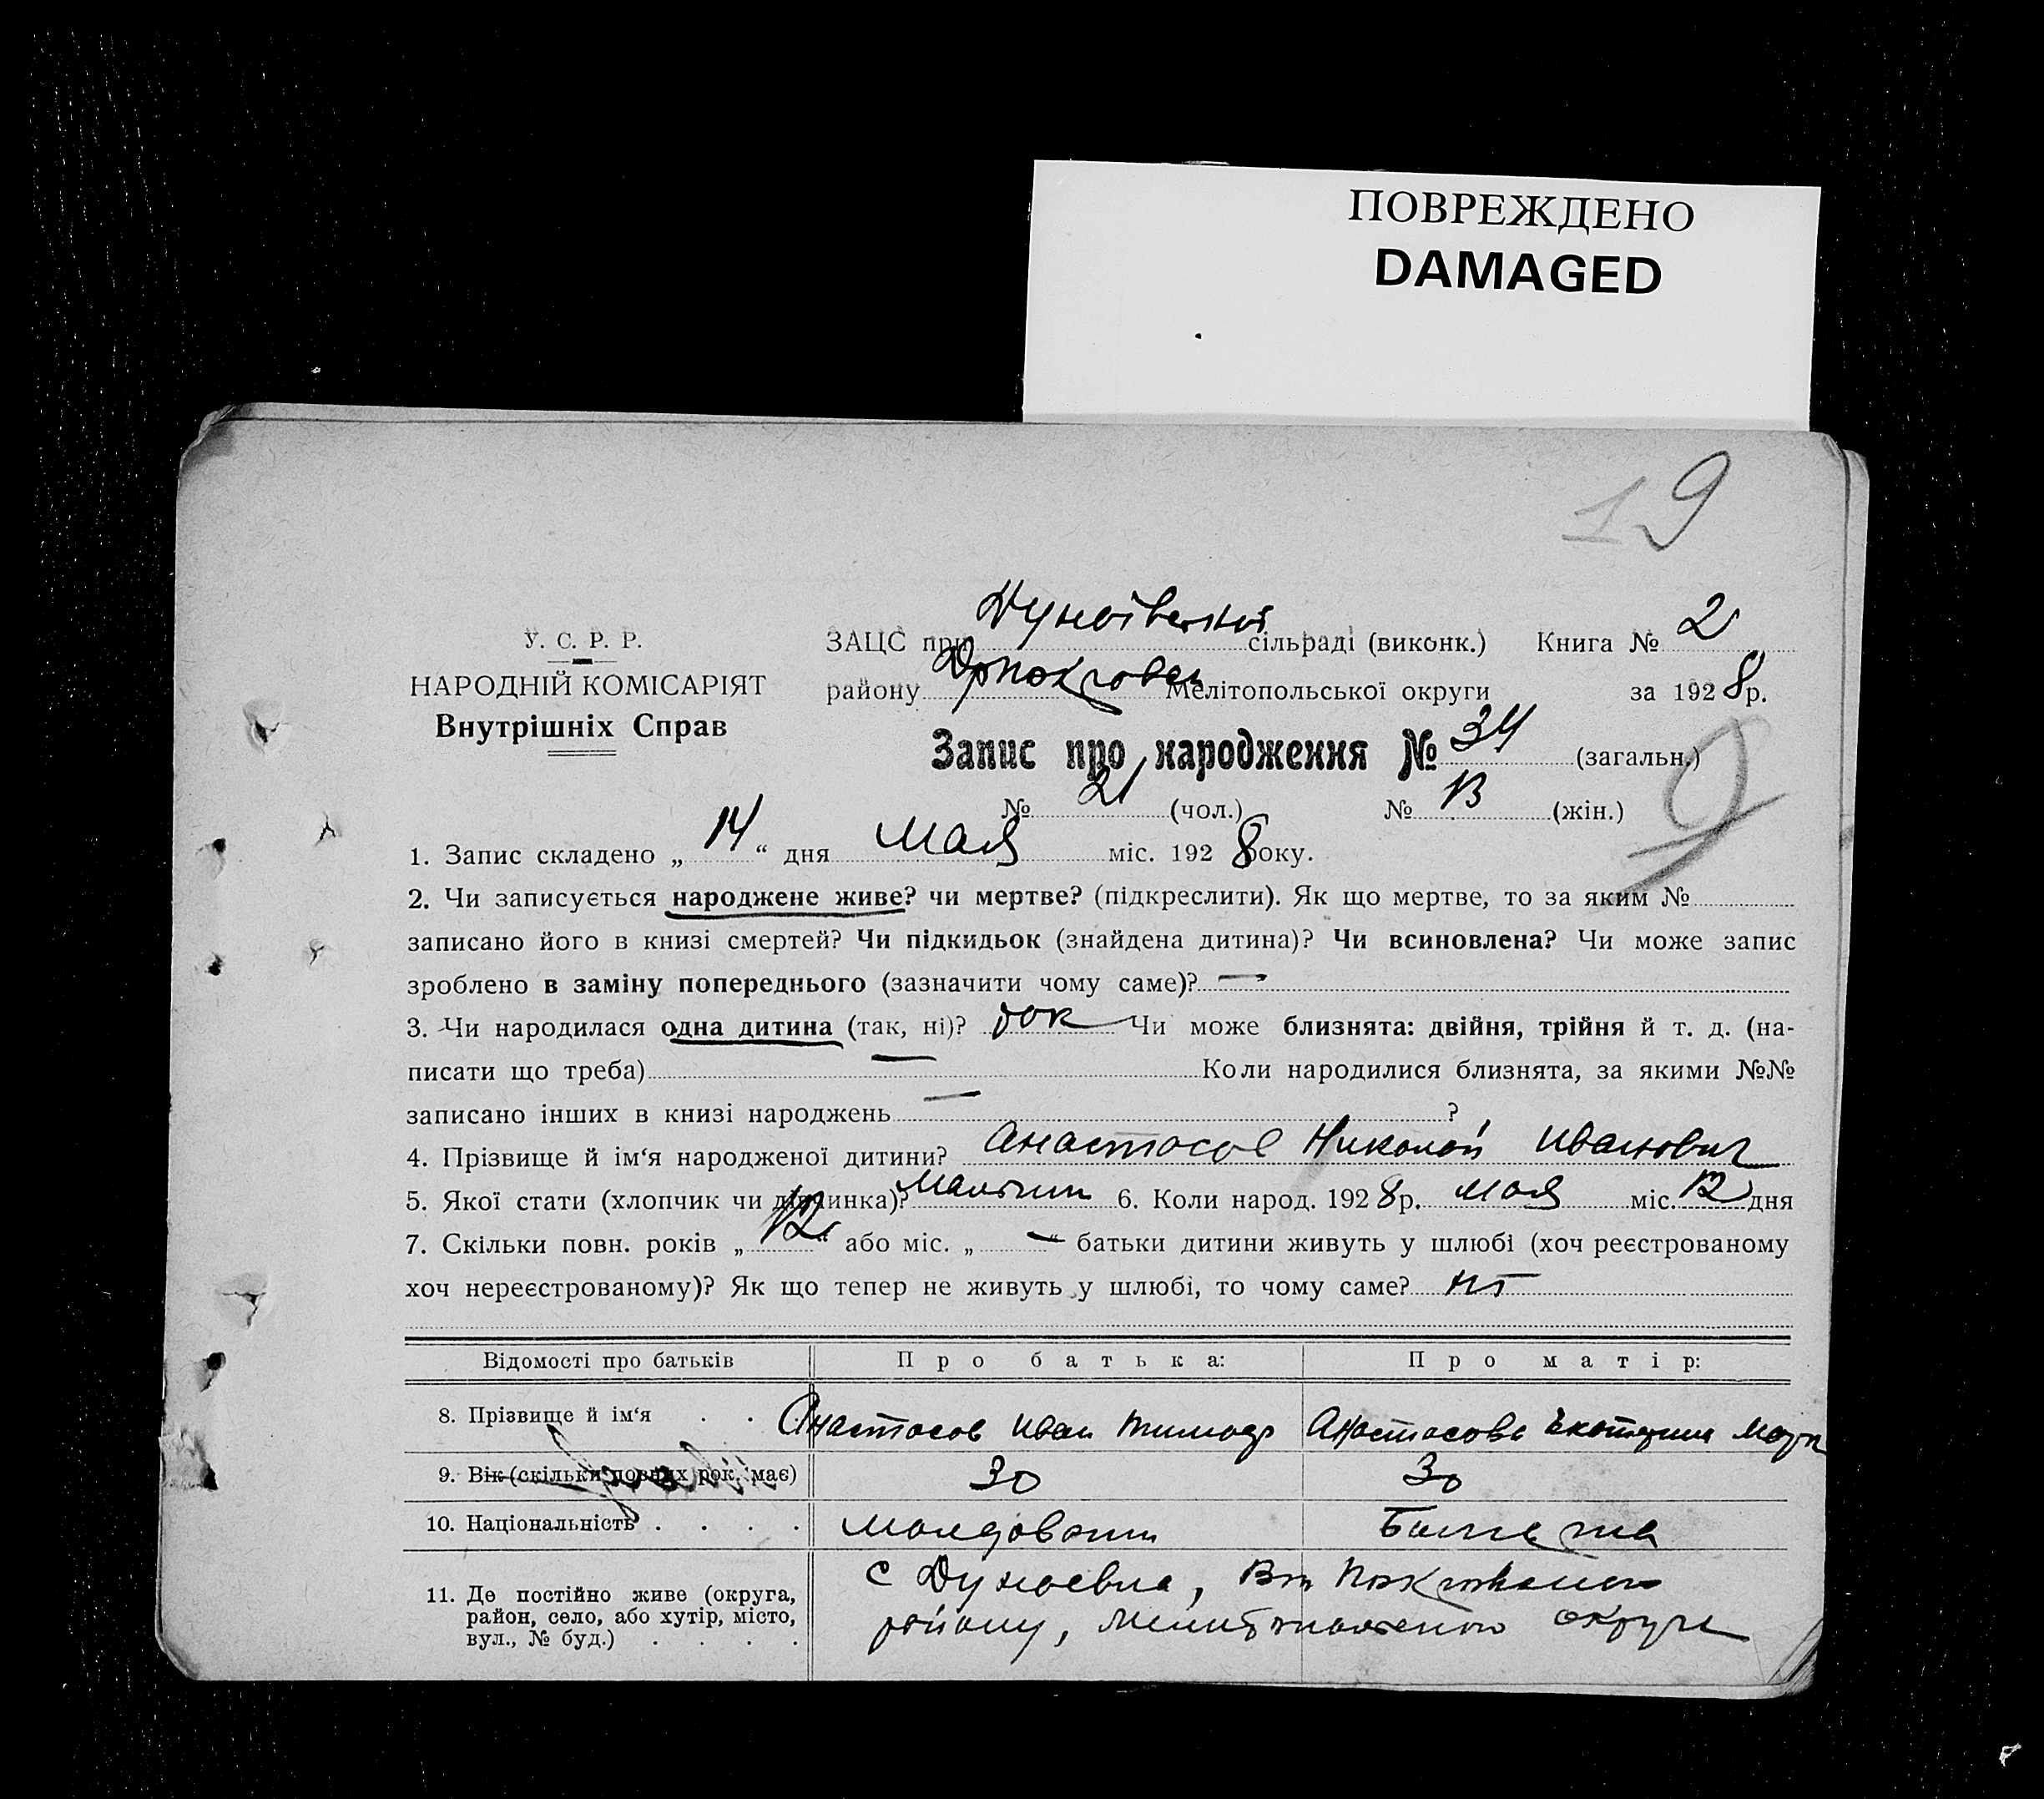 ПОВРЕЖДЕНО
DAMAGED
19
У. С. Р. Р.
НАРОДНІЙ КОМІСАРІЯТ
Внутрішніх Справ
ЗАЦС при Дунаївській сільраді (виконк.) Книга № 2
району Мелітопольської округи за 1928 р.
Запис про народження № 34 (загальн.)
№ 21 (чол.) № 13 (жін.)
1. Запис складено „14“ дня мая міс. 1928 року.
2. Чи записується народжене живе? чи мертве? (підкреслити). Як що мертве, то за яким №
записано його в книзі смертей? Чи підкидьок (знайдена дитина)? Чи всиновлена? Чи може запис
зроблено в заміну попереднього (зазначити чому саме)? —
3. Чи народилася одна дитина (так, ні)? Чи може близнята: двійня, трійня й т. д. (на-
писати що треба) — Коли народилися близнята, за якими №№
записано інших в книзі народжень — ?
4. Прізвище й ім‘я народженої дитини? Анастасов Николай Иванович
5. Якої стати (хлопчик чи дівчинка)? 6. Коли народ. 1928 р. мая міс. 12 дня
7. Скільки повн. років „12“ або міс. „—“ батьки дитини живуть у шлюбі (хоч реєстрованому
хоч нереєстрованому)? Як що тепер не живуть у шлюбі, то чому саме?
Відомості про батьків Про батька: Про матір:
8. Прізвище й ім‘я . . . Анастасов Иван Тимоф Анастасова Екатерина
9. Вік (скільки повних рок. має) 30 30
10. Національність . . . . Молдован
11. Де постійно живе (округа,
район, село, або хутір, місто,
вул., № буд.) . . . .
с Дунаевка,
району, округи